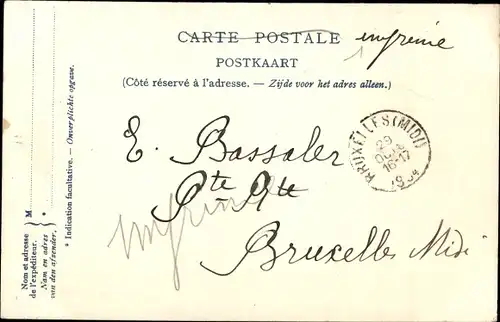 CARTE POSTALE imprimé
POSTKAART
(Côté réservé à l'adresse. — Zijde voor het adres alleen.)
E. Bassaler
Pte Rte
Bruxelles Midi
imprimé
BRUXELLES (MIDI)
29
16-17
M
Nom et adresse
de l'expéditeur.
Nam en adres
van den afzender.
* Indication facultative. — Onverplichte opgave.